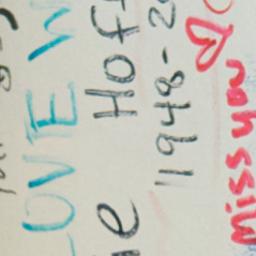 LOVE W
ne Hoff
11948-2
Miss you